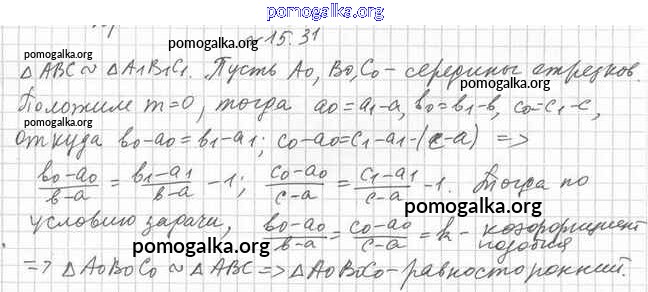 pomogalka.org
№15.31
pomogalka.org pomogalka.org
△ABC ∾ △A1B1C1. Пусть A0, B0, C0 – середины отрезков.
Положим m=0, тогда a0=a1-a, b0=b1-b, c0=c1-c,
pomogalka.org
откуда b0-a0=b1-a1; c0-a0=c1-a1-(c-a) =>
(b0-a0)/(b-a) = (b1-a1)/(b-a) -1; (c0-a0)/(c-a) = (c1-a1)/(c-a) -1. Тогда по
pomogalka.org
условию задачи, (b0-a0)/(b-a) = (c0-a0)/(c-a) = k – коэффициент
подобия
pomogalka.org
=> △A0B0C0 ∾ △ABC => △A0B0C0 – равносторонний.
pomogalka.org